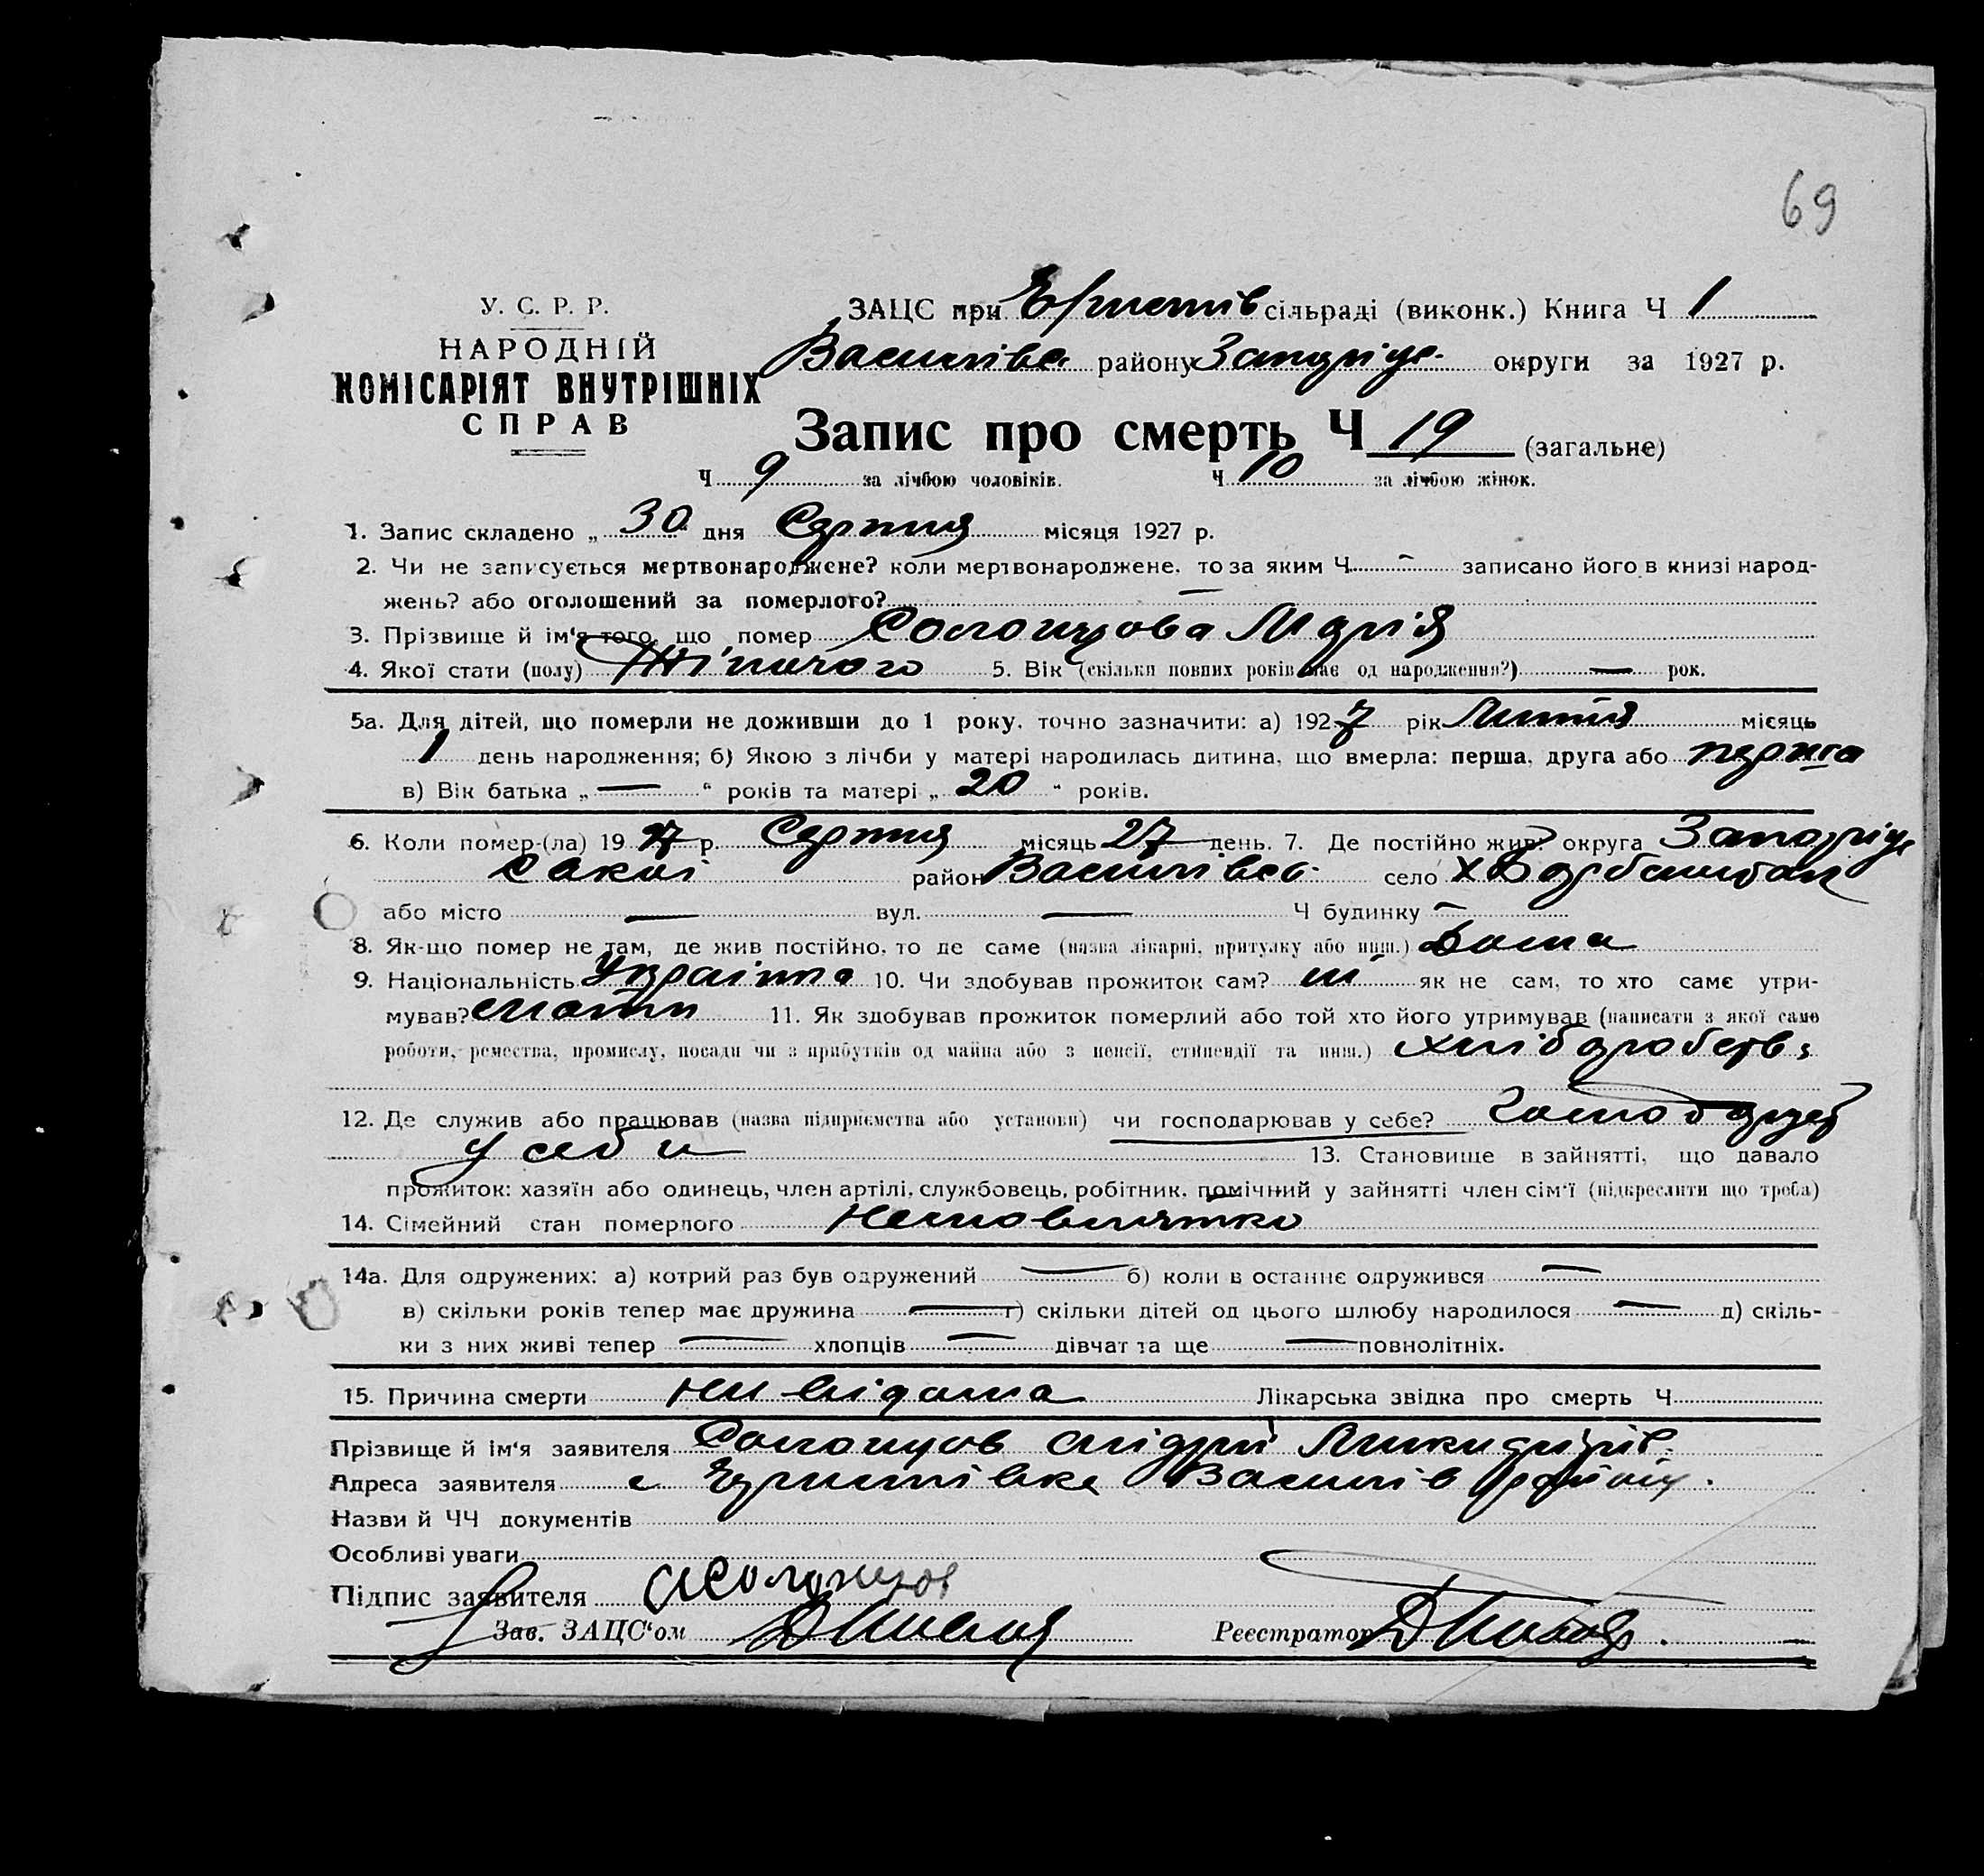 69
У. С. Р. Р.
НАРОДНІЙ
КОМІСАРІЯТ ВНУТРІШНІХ
СПРАВ
ЗАЦС при сільраді (виконк.) Книга Ч 1
Василівсь району Запоріць округи за 1927 р.
Запис про смерть Ч 19 (загальне)
Ч 9 за лічбою чоловіків. Ч 10 за лічбою жінок.
1. Запис складено „ 30 " дня Серпня місяця 1927 р.
2. Чи не записується мертвонароджене? коли мертвонароджене, то за яким Ч — записано його в книзі народ-
жень? або оголошений за померлого? —
3. Прізвище й ім'я того, що помер Солонцова Марія
4. Якої стати (полу) Жіночого 5. Вік (скільки повних років має од народження?) — рок.
5а. Для дітей, що померли не доживши до 1 року, точно зазначити: а) 1927 рік місяць
1 день народження; б) Якою з лічби у матері народилась дитина, що вмерла: перша, друга або перша
в) Вік батька „ — " років та матері „ 20 " років.
6. Коли помер-(ла) 1927 р. Серпня місяць 27 день. 7. Де постійно жив? округа Запоріць
район Василівсь село
або місто — вул. — Ч будинку —
8. Як-що помер не там, де жив постійно, то де саме (назва лікарні, притулку або инш.) Дома
9. Національність Українка 10. Чи здобував прожиток сам? ні як не сам, то хто саме утри-
мував? мати 11. Як здобував прожиток померлий або той хто його утримував (написати з якої само
роботи, ремества, промислу, посади чи з прибутків од майна або з пенсії, стипендії та инш.) хліборобств
12. Де служив або працював (назва підприємства або установи) чи господарював у себе? господарює
у себи 13. Становище в зайнятті, що давало
прожиток: хазяїн або одинець, член артілі, службовець, робітник, помічний у зайнятті член сім'ї (підкреслити що треба)
14. Сімейний стан померлого немовлятко
14а. Для одружених: а) котрий раз був одружений — б) коли в останнє одружився —
в) скільки років тепер має дружина — г) скільки дітей од цього шлюбу народилося — д) скіль-
ки з них живі тепер — хлопців — дівчат та ще — повнолітніх.
15. Причина смерти ни відома Лікарська звідка про смерть Ч
Прізвище й ім'я заявителя Солонцов Андрій
Адреса заявителя с Василів району
Назви й ЧЧ документів
Особливі уваги
Підпис заявителя АСолонцов
Зав. ЗАЦС'ом Реєстратор